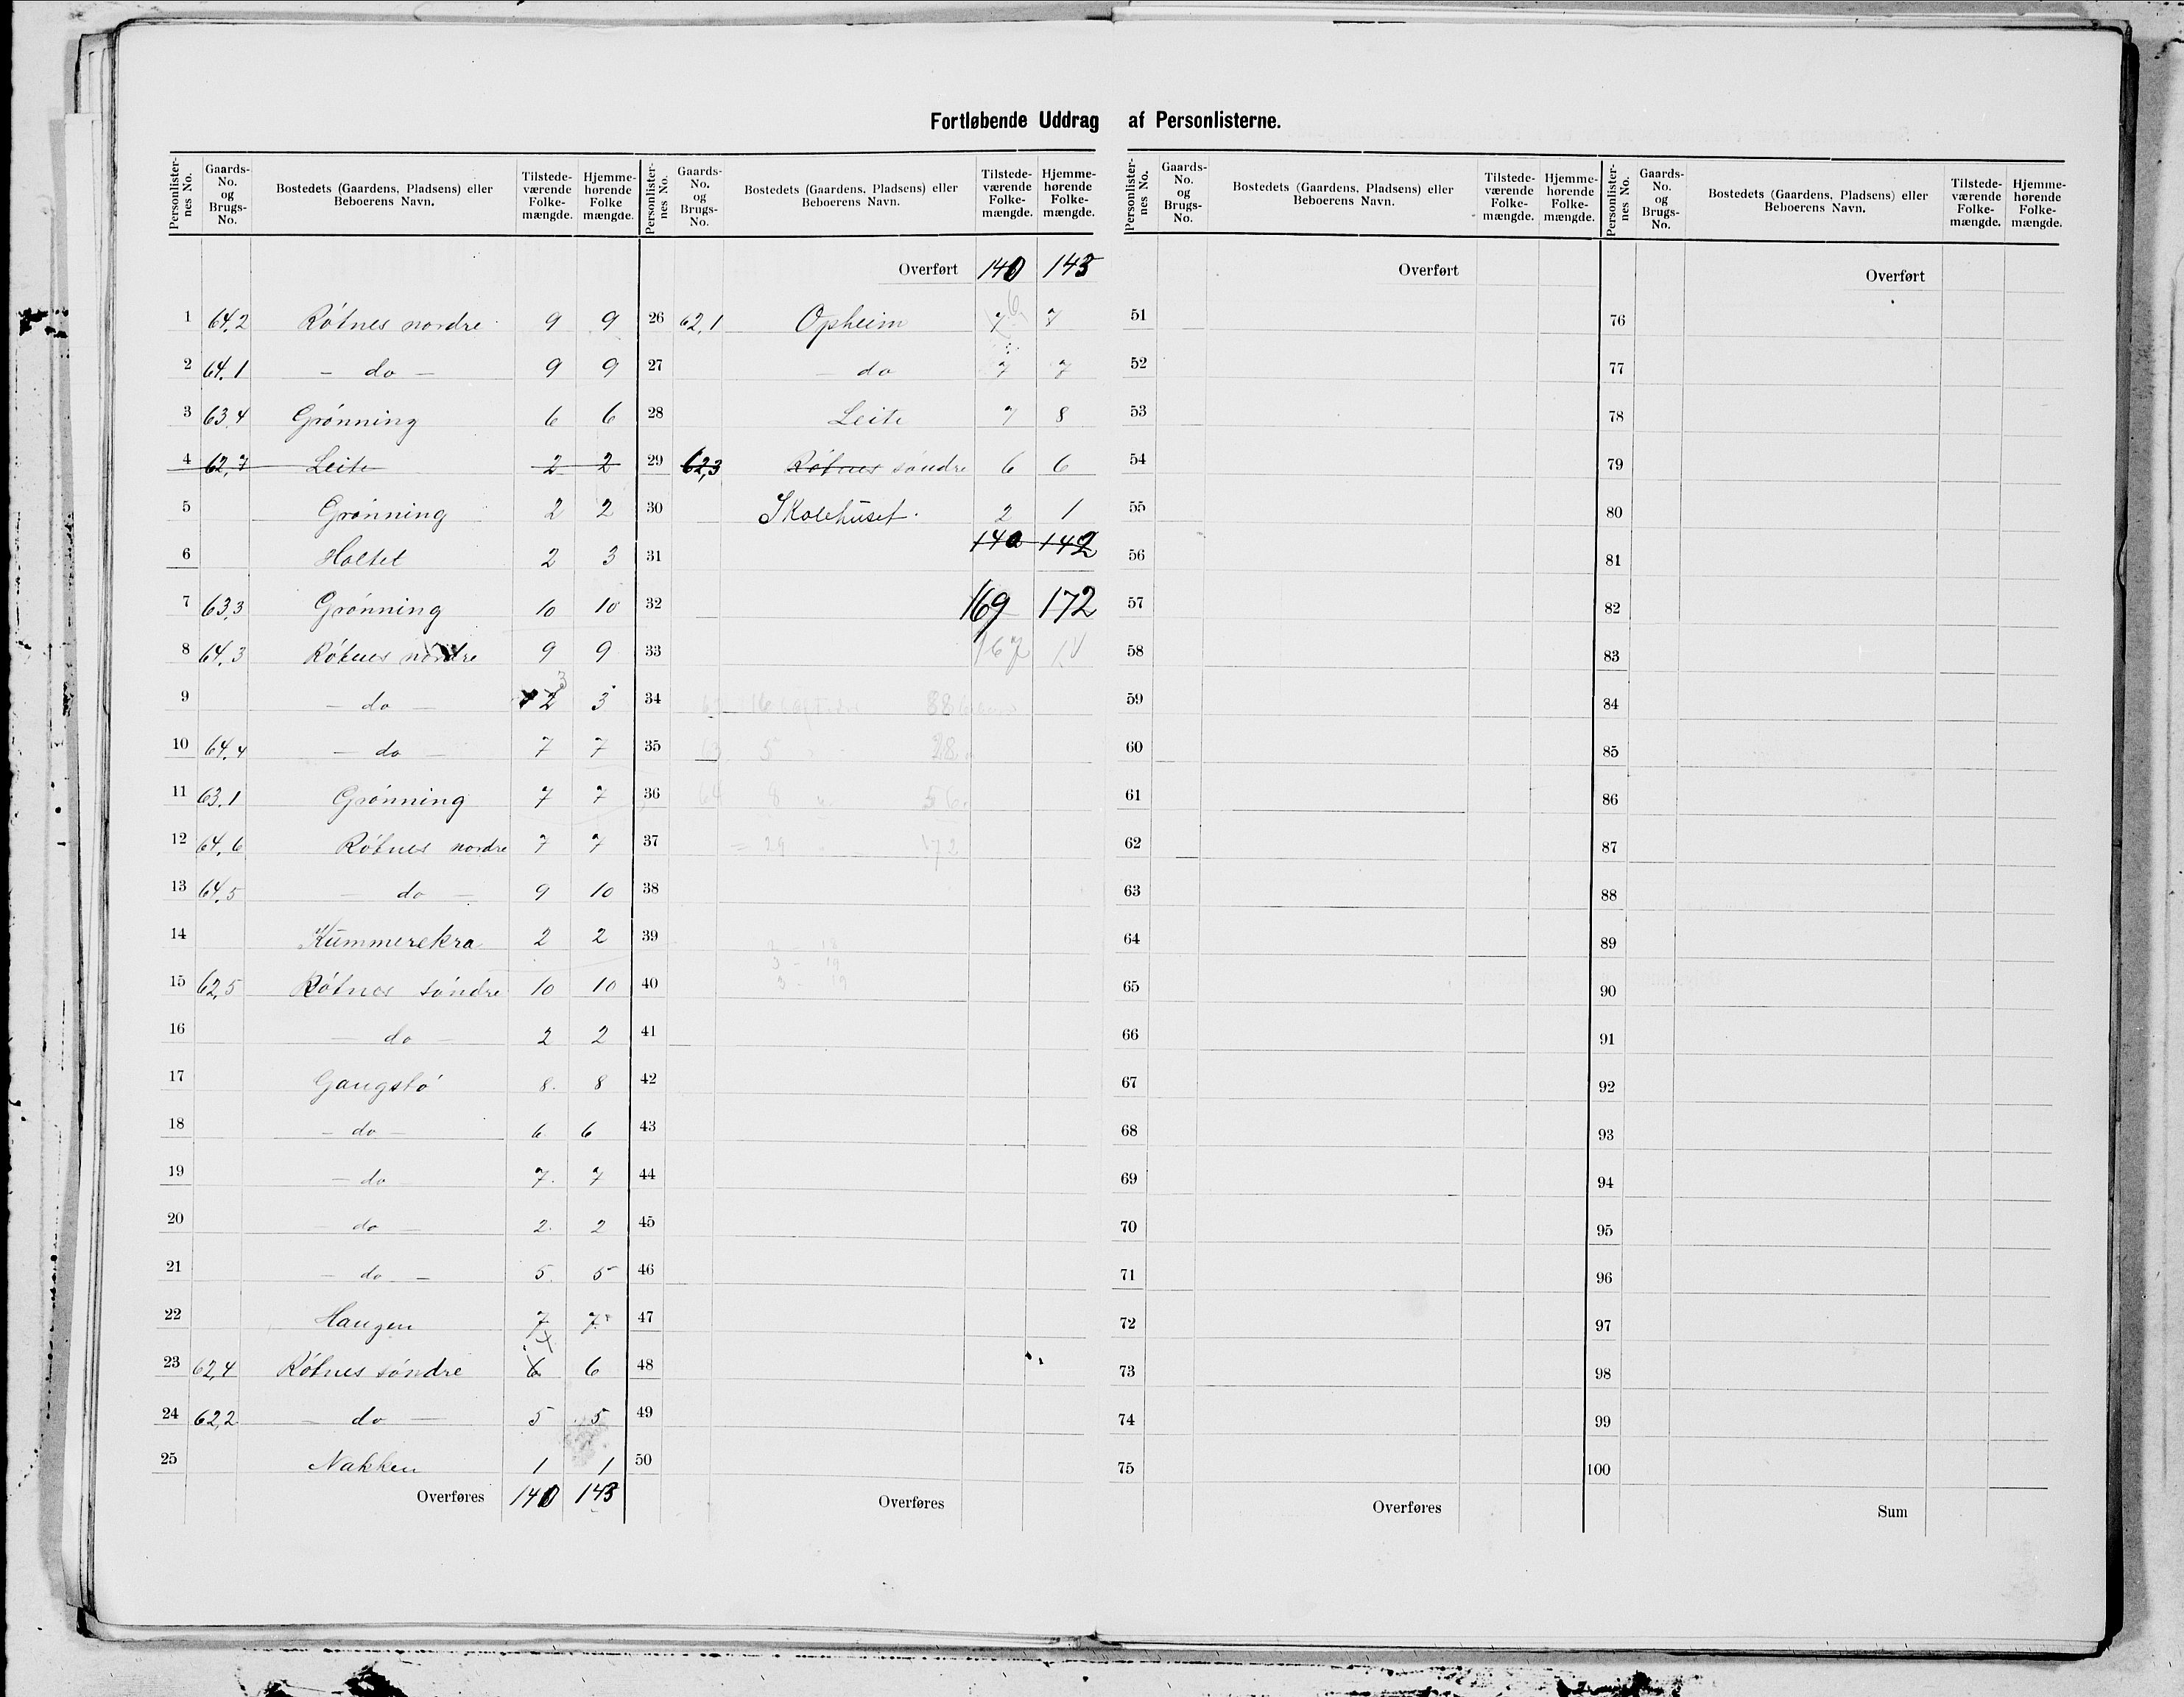 Fortløbende Uddrag af Personlisterne.
Personlister-nes No. | Gaards-No. og Brugs-No. | Bostedets (Gaardens, Pladsens) eller Beboerens Navn. | Tilstede-værende Folke-mængde. | Hjemme-hørende Folke mængde.
1 64,2 Rótnes nordre 9 9
2 64,1 – do – 9 9
3 63,4 Grónning 6 6
4 62,7 Leite 2 2
5 Grónning 2 2
6 Holtet 2 3
7 63,3 Grónning 10 10
8 64,3 Rótnes nordre 9 9
9 – do – 2 3 3
10 64,4 – do – 7 7
11 63,1 Grónning 7 7
12 64,6 Rótnes nordre 7 7
13 64,5 – do – 9 10
14 Kummerekra 2 2
15 62,5 Rótnes sóndre 10 10
16 – do – 2 2
17 Gangstó 8 8
18 – do – 6 6
19 – do 7 7
20 – do – 2 2
21 – do – 5 5
22 Haugen 7 7
23 62,4 Rótnes sóndre 6 6
24 62,2 – do – 5 5
25 Nakken 1 1
Overføres 140 143
Personlister-nes No. | Gaards-No. og Brugs-No. | Bostedets (Gaardens, Pladsens) eller Beboerens Navn. | Tilstede-værende Folke-mængde. | Hjemme-hørende Folke-mængde.
Overført 140 143
26 62,1 Opheim 7 6 7
27 – do 7 7
28 Leite 7 8
29 62,3 Rótnes sóndre 6 6
30 Skolehuset. 2 1
31 140 142
32 169 172
33 167
34 88
35 63 5 28
36 64 8 56
37 = 29 172
38
39
40 3 - 19
41
42
43
44
45
46
47
48
49
50
Overføres
Personlister-nes No. | Gaards-No. og Brugs-No. | Bostedets (Gaardens, Pladsens) eller Beboerens Navn. | Tilstede-værende Folke-mængde. | Hjemme-hørende Folke-mængde.
Overført
51
52
53
54
55
56
57
58
59
60
61
62
63
64
65
66
67
68
69
70
71
72
73
74
75
Overføres
Personlister-nes No. | Gaards-No. og Brugs-No. | Bostedets (Gaardens, Pladsens) eller Beboerens Navn. | Tilstede-værende Folke-mængde. | Hjemme-hørende Folke-mængde.
Overført
76
77
78
79
80
81
82
83
84
85
86
87
88
89
90
91
92
93
94
95
96
97
98
99
100
Sum